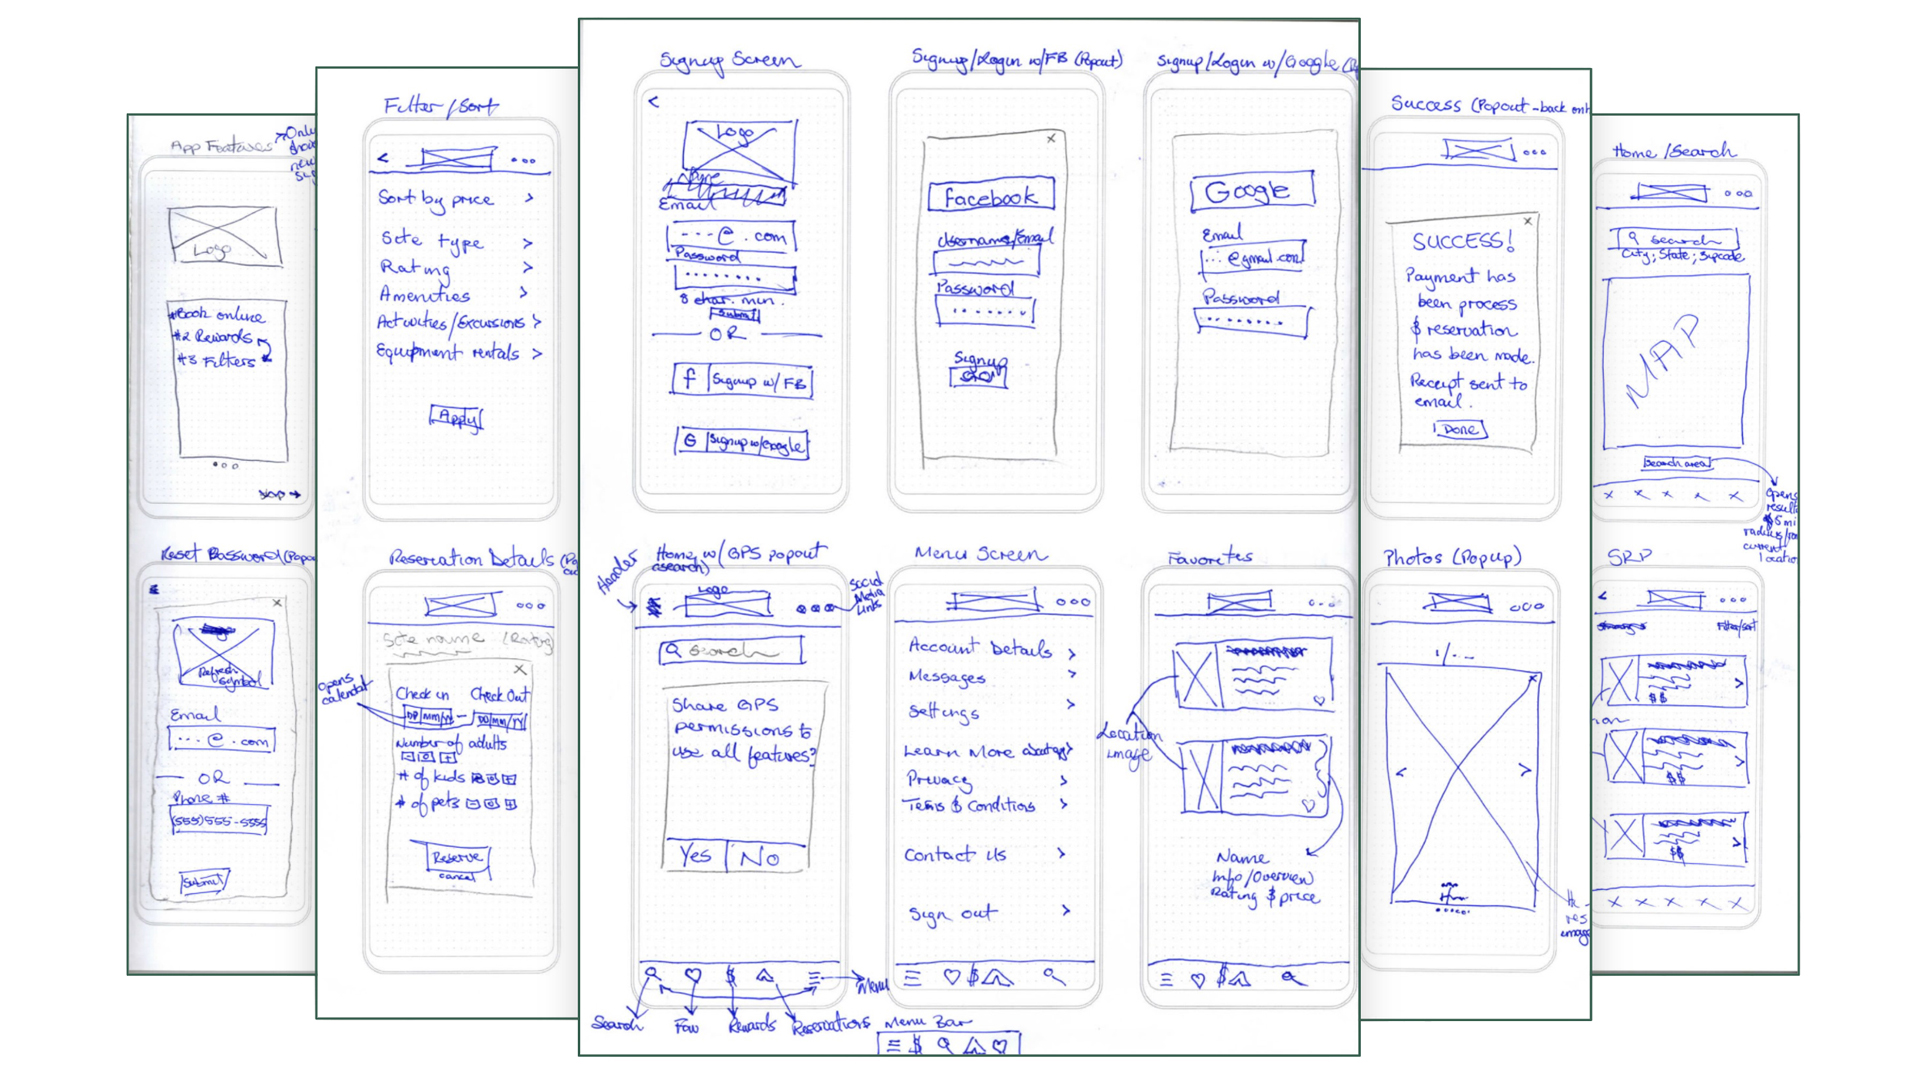 App Features
Logo
#Book online
#2 Rewards
#3 Filters
Skip
Reset Password
Refresh
Symbol
Email
---@.com
OR
Phone #
(555)555-5555
Submit
Filter/Sort
<
Sort by price >
Site type >
Rating >
Amenities >
Activities/Excursions >
Equipment rentals >
Apply
Reservation Details
Site name (Rating)
x
opens
calendar
Check in Check Out
DD/mm/yy - DD/mm/yy
Number of adults
# of kids
# of pets
Reserve
cancel
Signup Screen
<
Logo
Email
---@.com
Password
8 char. min.
Submit
OR
f Signup w/ FB
G Signup w/Google
Signup/Login w/FB (Popout)
x
Facebook
Username/Email
Password
Signup
Signup/Login w/Google
Google
Email
...@gmail.com
Password
Header
Home w/ GPS popout
Logo
Social
Media
Links
Search
Share GPS
permissions to
use all features?
Yes No
Search Fav Rewards Reservations
Menu
Menu Screen
Account Details >
Messages >
Settings >
Learn More about app >
Privacy >
Terms & Conditions >
Contact Us >
Sign out >
Menu Bar
Favorites
Location
image
Name
Info/Overview
Rating $ price
Success (Popout - back
x
SUCCESS!
Payment has
been process
& reservation
has been made.
Receipt sent to
email.
Done
Photos (Popup)
1/---
x
< >
Home/Search
Search
City; State; Zipcode
MAP
Search area
Opens
SRP
<
Filter/Sort
$$
$$
$$